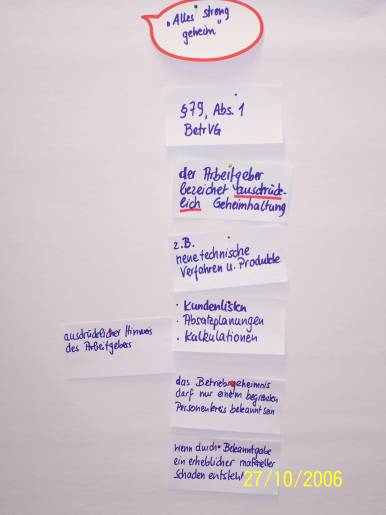 „Alles streng
geheim"
§79, Abs. 1
BetrVG
der Arbeitgeber
bezeichet ausdrück-
lich Geheimhaltung
z.B.
neue technische
Verfahren u. Produkte
· Kundenlisten
· Absatzplanungen
· Kalkulationen
ausdrücklicher Hinweis
des Arbeitgebers
das Betriebsgeheimnis
darf nur einem begrenzten
Personenkreis bekannt sein
wenn durch Bekanntgabe
ein erheblicher materieller
Schaden entsteht
27/10/2006